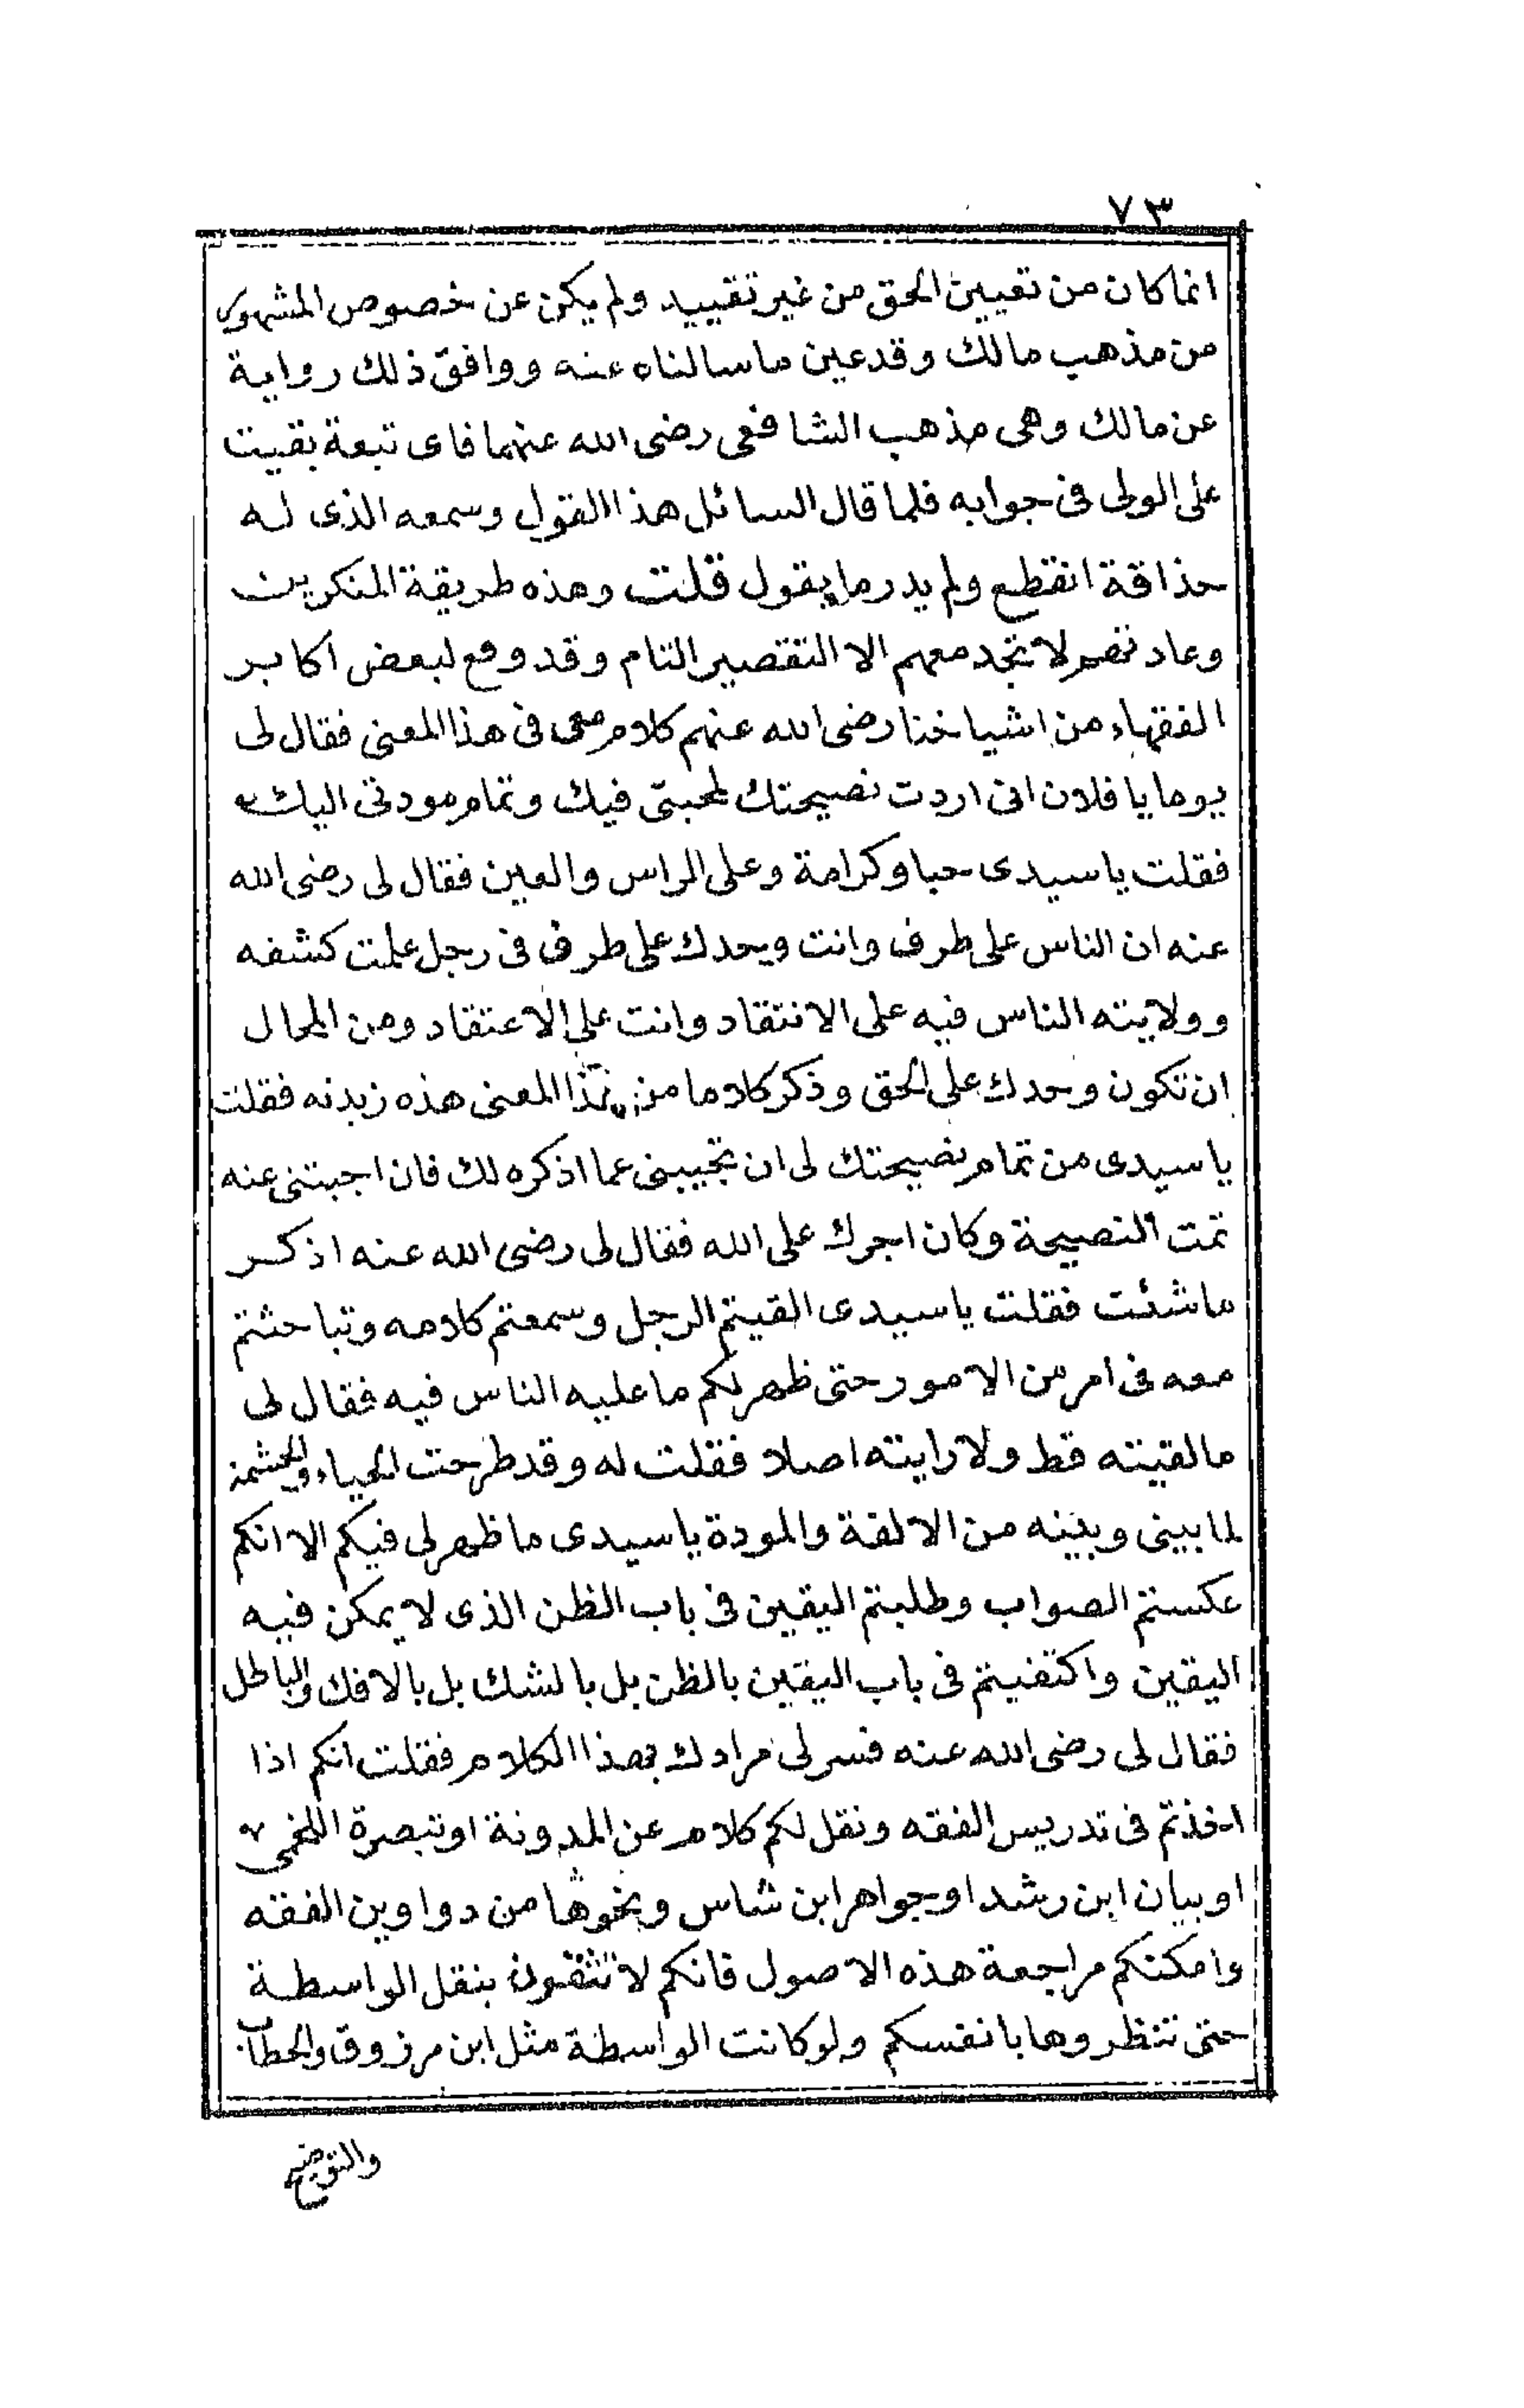 ٧٣
انما كان من تعيين الحق من غير تقييد ولم يكن عن خصوص المشهور
من مذهب مالك وقد عين ما سالناه عنه ووافق ذلك رواية
عن مالك وهى مذهب الشافعى رضى الله عنهما فاى تبعة بقيت
على الولى فى جوابه فلما قال السائل هذا القول وسمعه الذى له
حذاقة انقطع ولم يدر ما يقول قلت وهذه طريقة المنكرين
وعادتهم لا تجد معهم الا التقصير التام وقد وقع لبعض اكابر
الفقهاء من اشياخنا رضى الله عنهم كلام معى فى هذا المعنى فقال لى
يوما يا فلان انى اردت نصيحتك لمحبتى فيك وتمام مودتى اليك
فقلت يا سيدى حبا وكرامة وعلى الراس والعين فقال لى رضى الله
عنه ان الناس على طرف وانت وحدك على طرف فى رجل علمت كشفه
وولايته الناس فيه على الانتقاد وانت على الاعتقاد ومن المحال
ان تكون وحدك على الحق وذكر كلاما من هذا المعنى هذه زبدته فقلت
يا سيدى من تمام نصيحتك لى ان تجيبنى عما اذكره لك فان اجبتنى عنه
تمت النصيحة وكان اجرك على الله فقال لى رضى الله عنه اذكر
ما شئت فقلت يا سيدى القيتم الرجل وسمعتم كلامه وتباحثتم
معه فى امر من الامور حتى ظهر لكم ما عليه الناس فيه فقال لى
ما لقيته قط ولا رايته اصلا فقلت له وقد طرحت الحياء والحشمة
لما بينى وبينه من الالفة والمودة يا سيدى ما ظهر لى فيكم الا انكم
عكستم الصواب وطلبتم اليقين فى باب الظن الذى لا يمكن فيه
اليقين واكتفيتم فى باب اليقين بالظن بل بالشك بل بالافك والباطل
فقال لى رضى الله عنه فسر لى مرادك بهذا الكلام فقلت انكم اذا
اخذتم فى تدريس الفقه ونقل لكم كلام عن المدونة او تبصرة اللخمى
او بيان ابن رشد او جواهر ابن شاس ونحوها من دواوين الفقه
وامكنكم مراجعة هذه الاصول فانكم لا تثقون بنقل الواسطة
حتى تنظروها بانفسكم ولو كانت الواسطة مثل ابن مرزوق والحطاب
والتوضيح